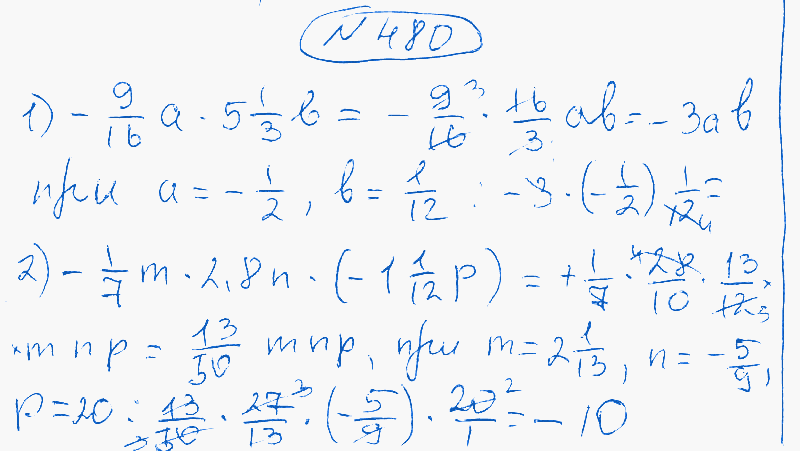 N 480
1) - 9/16 a · 5 1/3 b = - 9³/16 · 16/3 ab = - 3ab
при a = - 1/2, b = 1/12 : -3 · (- 1/2) 1/12₄ =
2) - 1/7 m · 2,8n · (-1 1/12 p) = + 1/7 · ⁴28/10 · 13/12₃ ×
×mnp = 13/30 mnp, при m = 2 1/13, n = - 5/9,
p = 20 : 13/₃30 · 27³/13 · (- 5/9) · 20²/1 = - 10